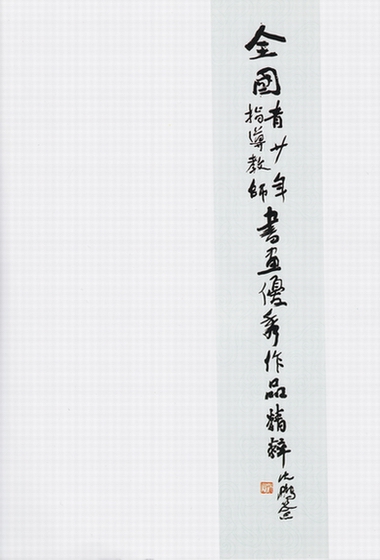 全國
青少年
指導教師
書畫優秀作品精粹
沈鵬題